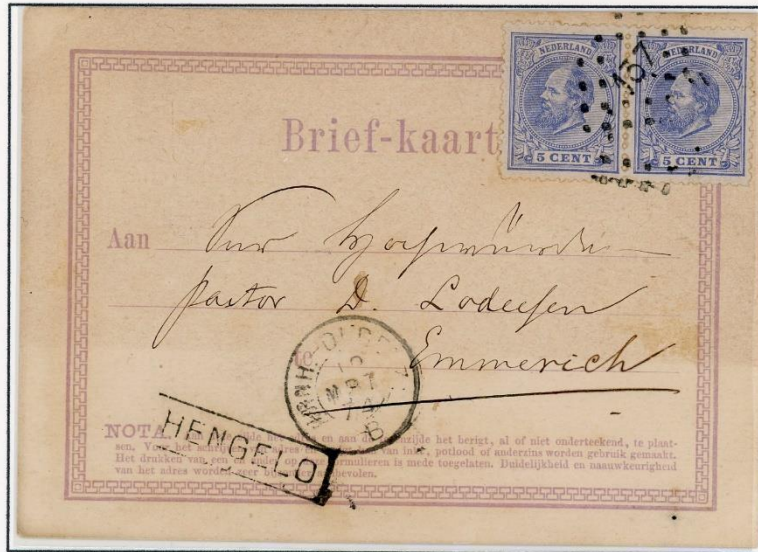 NEDERLAND NEDERLAND
157
5 CENT 5 CENT
Brief-kaart
Aan
Hochwürden
Pastor D. Lodeesen
te Emmerich
HENGELO
NOTA. zijde het berigt, al of niet onderteekend, te plaat-
sen. Voor het van inkt, potlood of anderzins worden gebruik gemaakt.
Het drukken van een en ander op de formulieren is mede toegelaten. Duidelijkheid en naauwkeurigheid
van het adres worden zeer bevolen.